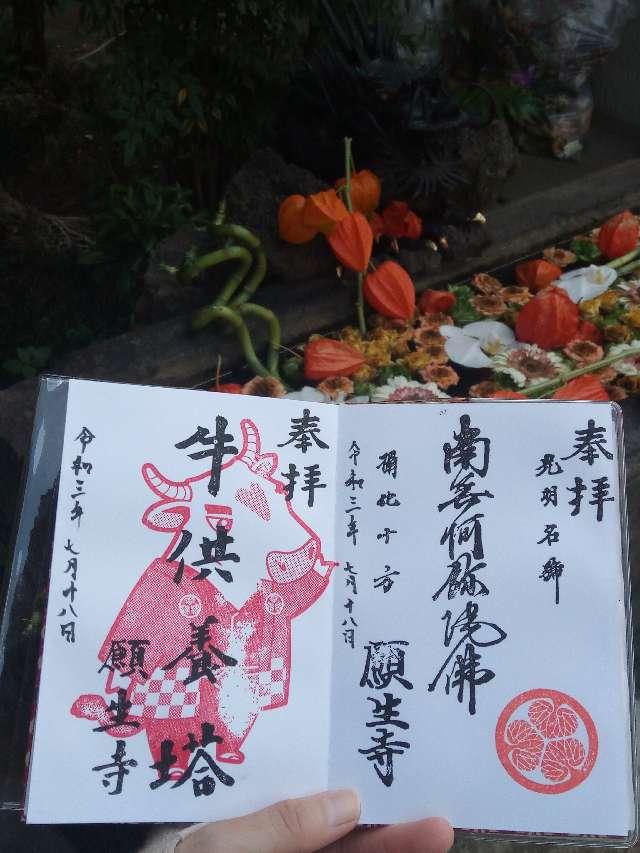 奉拝
光明名号
南無阿弥陀佛
彌陀十方
令和三年 七月十八日
願生寺
奉拝
牛供養塔
願生寺
令和三年 七月十八日